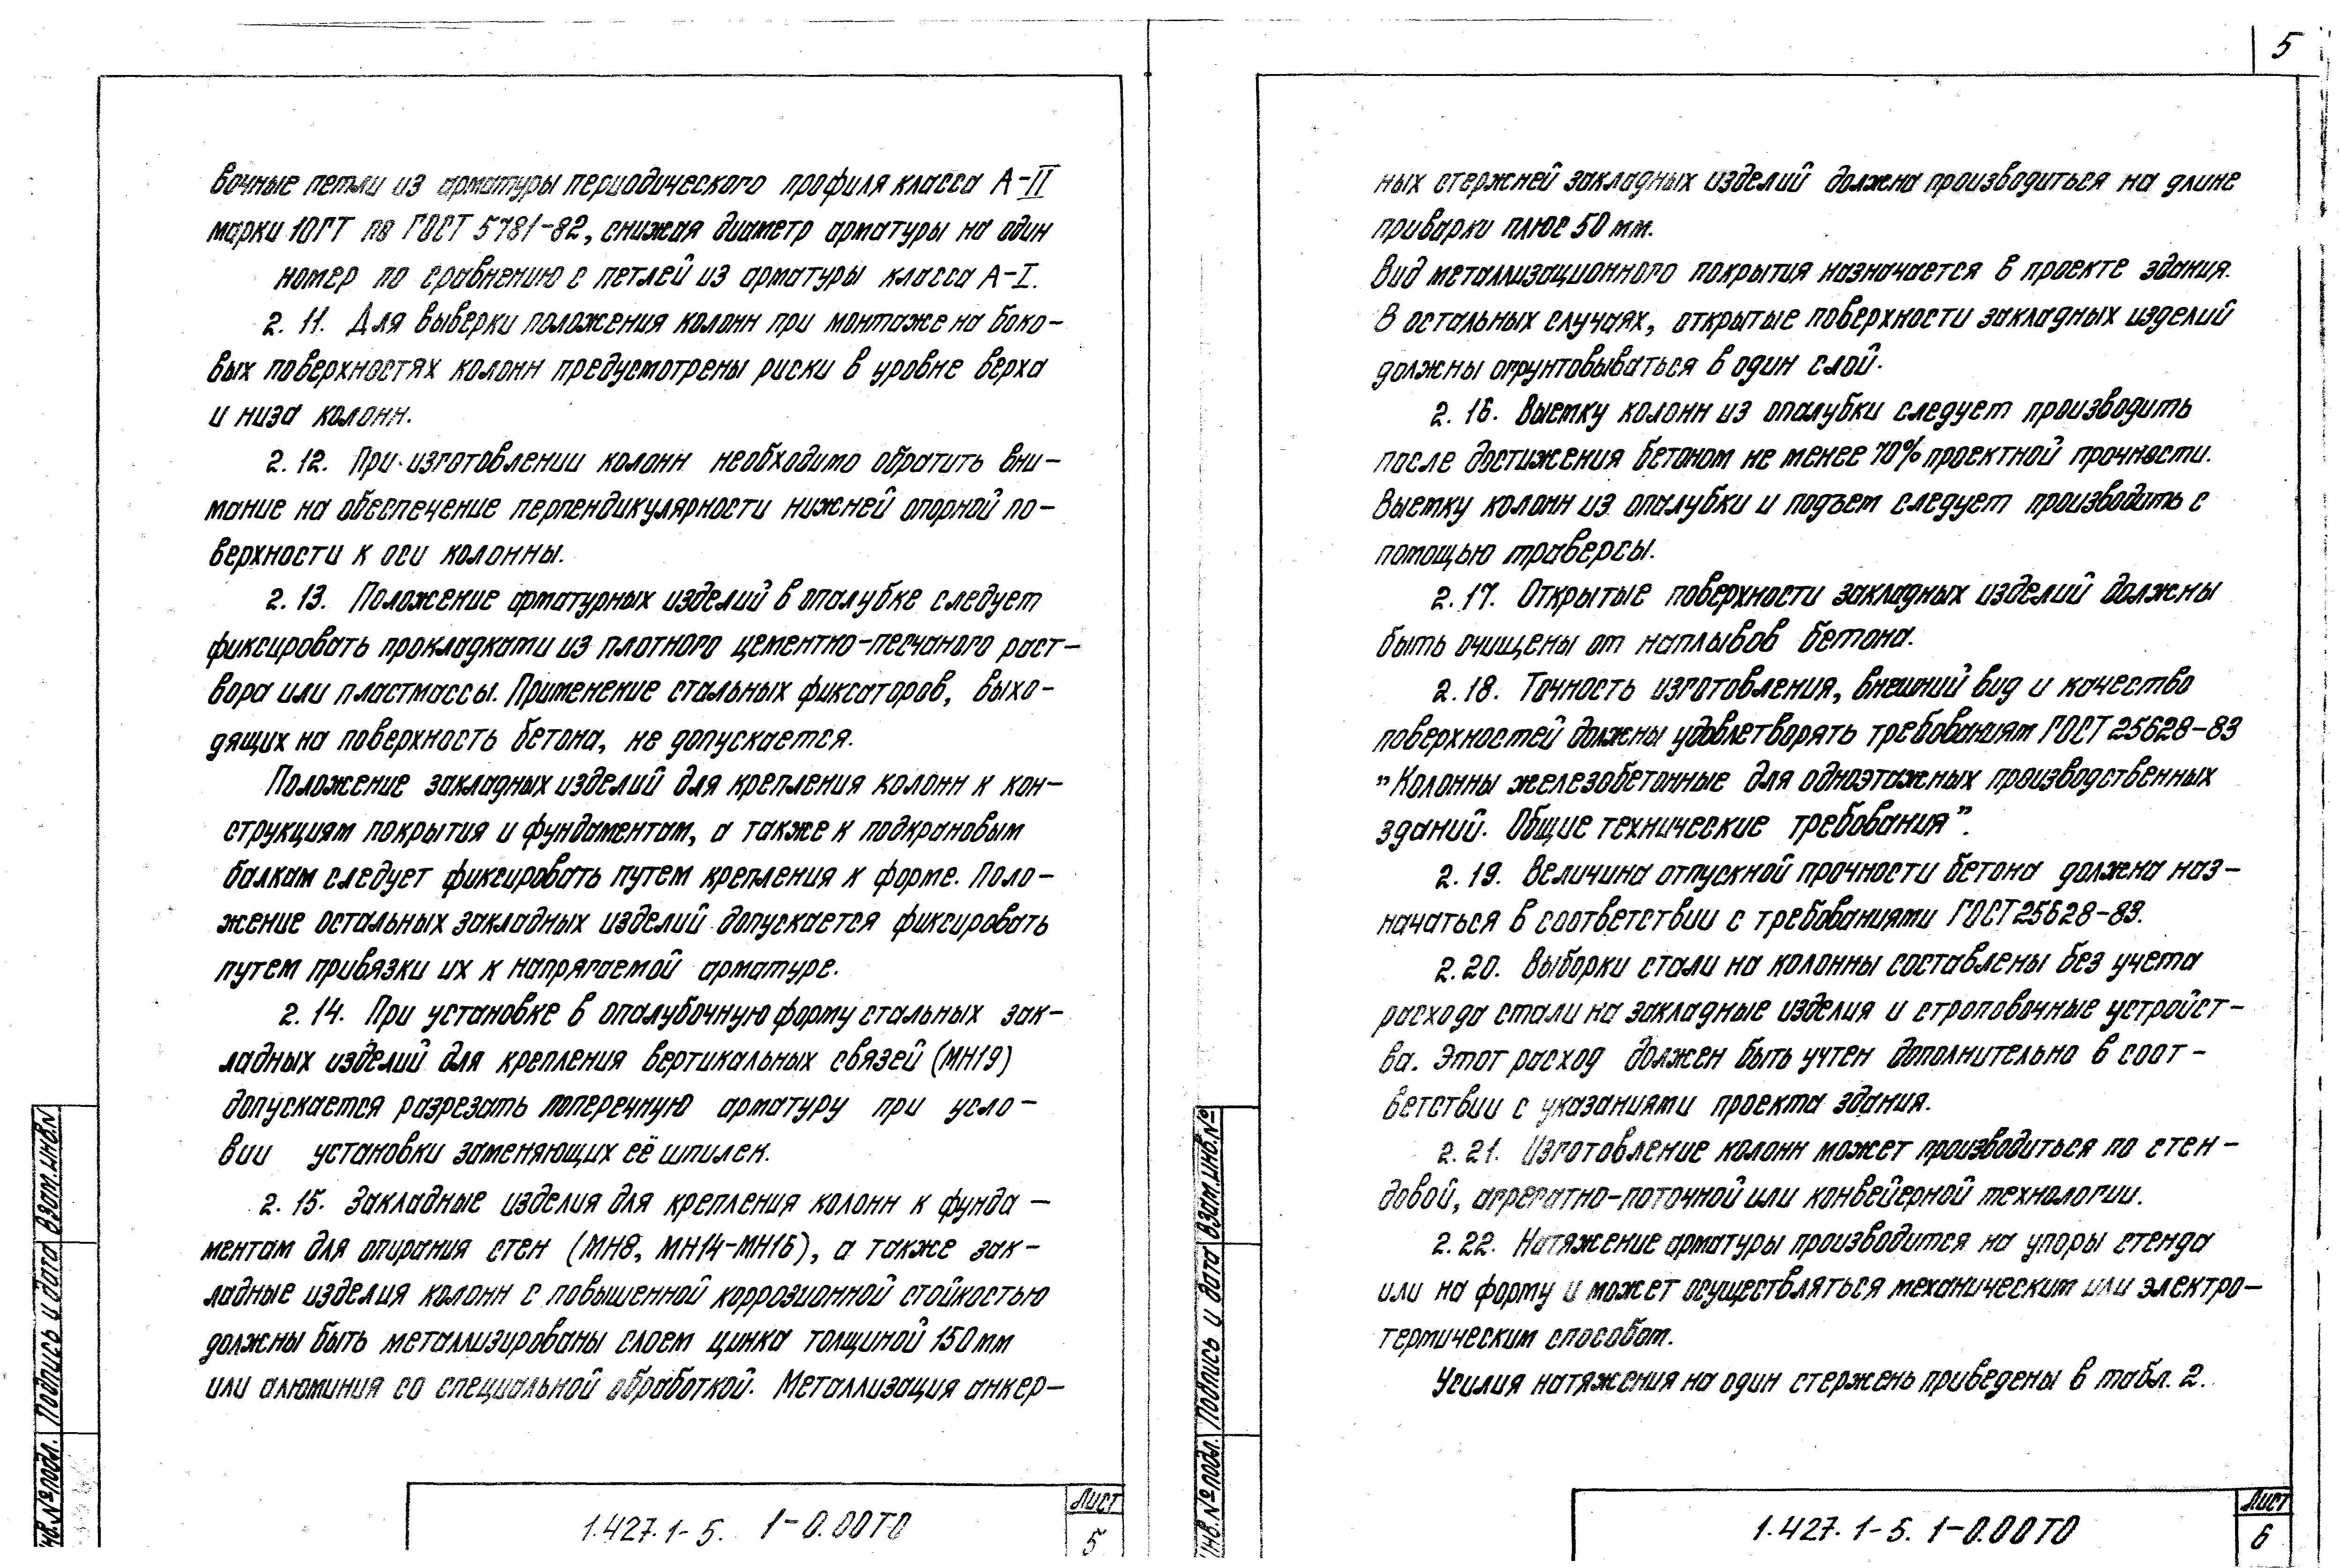 5
вочные петли из арматуры периодического профиля класса А-II
марки 10ГТ по ГОСТ 5781-82, снижая диаметр арматуры на один
номер по сравнению с петлей из арматуры класса А-I.
2.11. Для выверки положения колонн при монтаже на боко-
вых поверхностях колонн предусмотрены риски в уровне верха
и низа колонн.
2.12. При изготовлении колонн необходимо обратить вни-
мание на обеспечение перпендикулярности нижней опорной по-
верхности к оси колонны.
2.13. Положение арматурных изделий в опалубке следует
фиксировать прокладками из плотного цементно-песчаного раст-
вора или пластмассы. Применение стальных фиксаторов, выхо-
дящих на поверхность бетона, не допускается.
Положение закладных изделий для крепления колонн к кон-
струкциям покрытия и фундаментам, а также к подкрановым
балкам следует фиксировать путем крепления к форме. Поло-
жение остальных закладных изделий допускается фиксировать
путем привязки их к напрягаемой арматуре.
2.14. При установке в опалубочную форму стальных зак-
ладных изделий для крепления вертикальных связей (МН19)
допускается разрезать поперечную арматуру при усло-
вии установки заменяющих её шпилек.
2.15. Закладные изделия для крепления колонн к фунда-
ментам для опирания стен (МН8, МН14-МН16), а также зак-
ладные изделия колонн с повышенной коррозионной стойкостью
должны быть металлизированы слоем цинка толщиной 150мм
или алюминия со специальной обработкой. Металлизация анкер-
1.427.1-5. 1-0.00ТО
Лист
5
Взам.инв.№
Подпись и дата
Инв.№подл.
ных стержней закладных изделий должна производиться на длине
приварки плюс 50 мм.
Вид металлизационного покрытия назначается в проекте здания.
В остальных случаях, открытые поверхности закладных изделий
должны огрунтовываться в один слой.
2.16. Выемку колонн из опалубки следует производить
после достижения бетоном не менее 70% проектной прочности.
Выемку колонн из опалубки и подъем следует производить с
помощью траверсы.
2.17. Открытые поверхности закладных изделий должны
быть очищены от наплывов бетона.
2.18. Точность изготовления, внешний вид и качество
поверхностей должны удовлетворять требованиям ГОСТ 25628-83
"Колонны железобетонные для одноэтажных производственных
зданий. Общие технические требования".
2.19. Величина отпускной прочности бетона должна наз-
начаться в соответствии с требованиями ГОСТ 25628-83.
2.20. Выборки стали на колонны составлены без учета
расхода стали на закладные изделия и строповочные устройст-
ва. Этот расход должен быть учтен дополнительно в соот-
ветствии с указаниями проекта здания.
2.21. Изготовление колонн может производиться по стен-
довой, агрегатно-поточной или конвейерной технологии.
2.22. Натяжение арматуры производится на упоры стенда
или на форму и может осуществляться механическим или электро-
термическим способом.
Усилия натяжения на один стержень приведены в табл. 2.
1.427.1-5. 1-0.00ТО
Лист
6
Взам.инв.№
Подпись и дата
Инв.№подл.